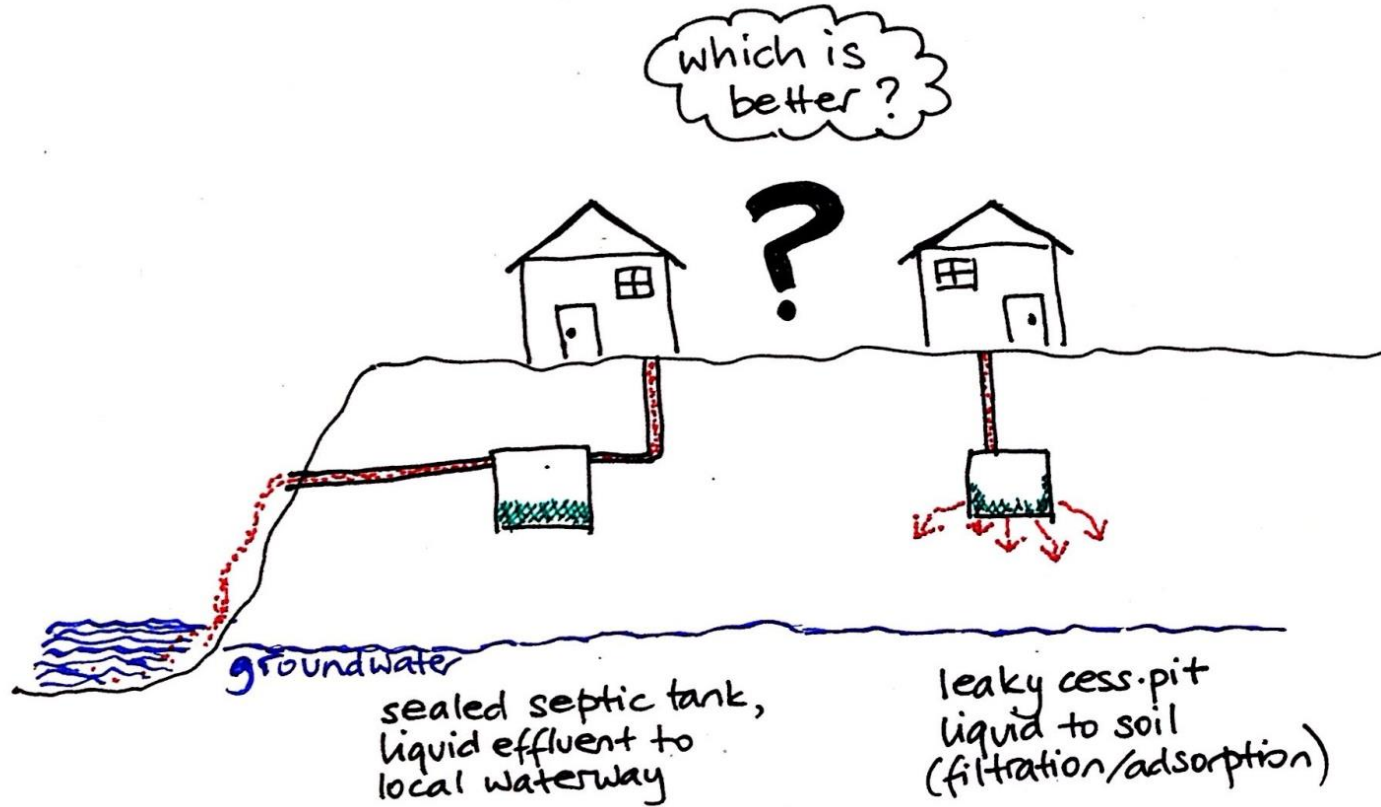 which is
better?
?
groundwater
sealed septic tank,
liquid effluent to
local waterway
leaky cess-pit
liquid to soil
(filtration/adsorption)